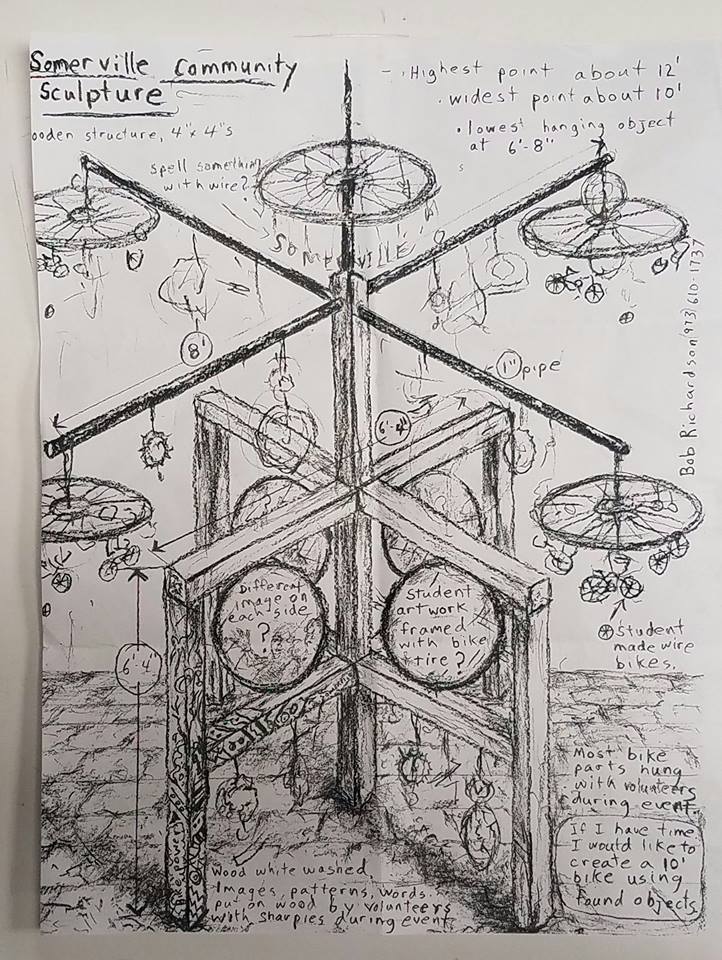 Somerville Community
Sculpture
ooden structure, 4"x 4"s
- . Highest point about 12'
. widest point about 10'
. lowest hanging object
at 6'-8"
spell something
with wire?
SOMERVILLE
8'
1" pipe
6'-4"
Bob Richardson (973) 610-1737
Different
image on
each side
?
Student
artwork
framed
with bike
tire?
6'-4"
Student
made wire
bikes.
Most bike
parts hung
with volunteers
during event.
If I have time
I would like to
create a 10'
bike using
found objects
Bike power
Wood white washed.
Images, patterns, words
put on wood by volunteers
with sharpies during event